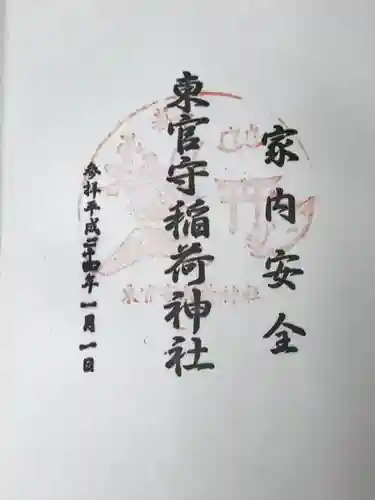 家内安全
東官守稲荷神社
参拝平成二十四年一月一日